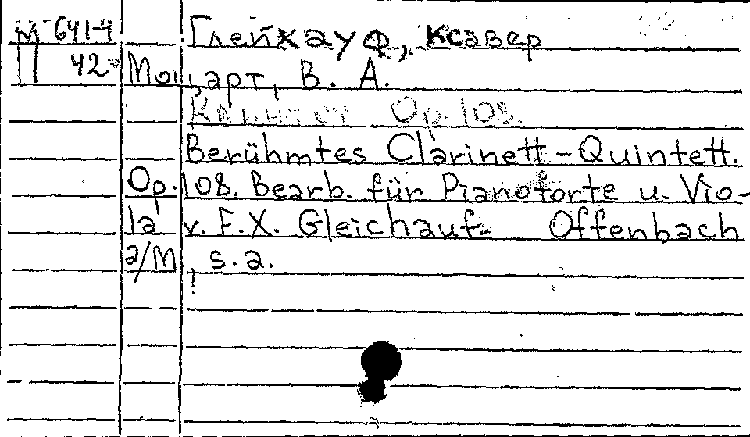 М 641-4 Глейхауф, Ксавер
42 Моцарт, В. А.
Квинтет Op. 108.
Berühmtes Clarinett-Quintett.
Op. 108. Bearb. für Pianoforte u. Vio-
la v. F. X. Gleichauf- Offenbach
a/M, s. a.